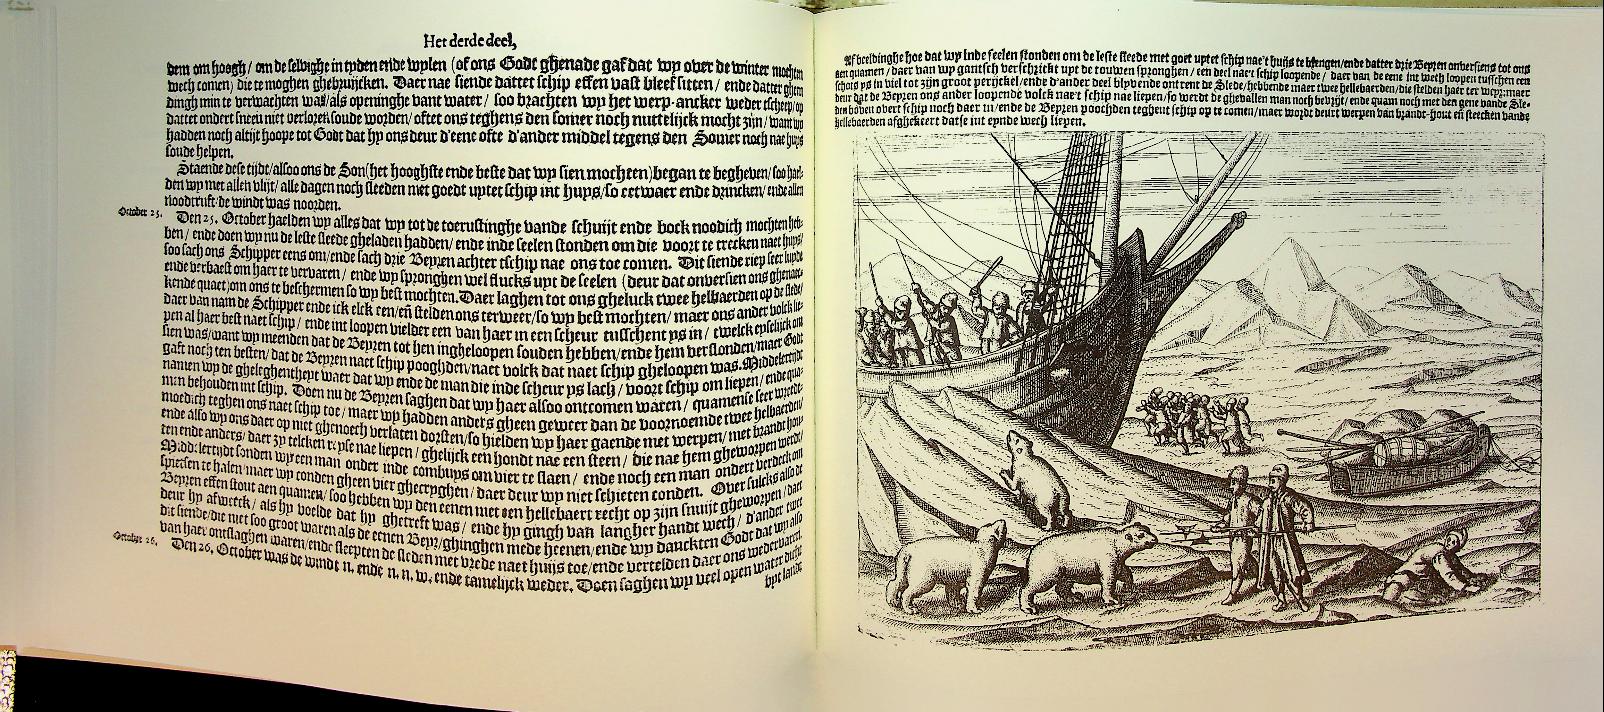 Het derde deel,
dem om hoogh/ om de selvighe in tyden ende wylen (of ons Godt ghenade gaf dat wy over de winter mochten
wech comen) die te moghen ghebruijcken. Daer nae siende dattet schip effen vast bleef sitten/ ende datter gheen
dingh min te verwachten was/als openinghe vant water/ soo brachten wy het werp-ancker weder tscheep/op
dattet ondert sneeu niet verloren soude worden/ oftet ons teghens den somer noch nuttelijck mocht zijn/ want wy
hadden noch altijt hoope tot Godt dat hy ons deur d'eene ofte d'ander middel tegens den Somer noch nae huys
soude helpen.
Staende dese tijdt/alsoo ons de Son(het hooghste ende beste dat wy sien mochten)began te begheven/ soo hael-
den wy met allen vlijt/ alle dagen noch sleeden met goedt uptet schip int huys/so eetwaer ende drincken/ ende allen
noodtruft/de windt was noorden.
October 25.
Den 25. October haelden wy alles dat wy tot de toerustinghe vande schuijt ende bock noodich mochten heb-
ben/ ende doen wy nu de leste sleede gheladen hadden/ ende inde seelen stonden om die voort te trecken naet huys/
soo sach ons Schipper eens om/ende sach drie Beyren achter tschip nae ons toe comen. Dit siende riep seer luyde
ende verbaest om haer te vervaren/ ende wy spronghen wel flucks upt de seelen (deur dat onversien ons ghenae-
kende quaet)om ons te beschermen so wy best mochten. Daer laghen tot ons gheluck twee helbaerden op de slede/
daer van nam de Schipper ende ick elck een/en stelden ons ter weer/so wy best mochten/ maer ons ander volck lie-
pen al haer best naet schip/ ende int loopen vielder een van haer in een scheur tusschent ys in/ twelck eyselijck om
sien was/want wy meenden dat de Beyren tot hen ingheloopen souden hebben/ende hem verslonden/maer Godt
gaft noch ten besten/ dat de Beyren naet schip pooghden/naet volck dat naet schip gheloopen was. Middelertijdt
namen wy de gheleghentheyt waer dat wy ende de man die inde scheur ys lach/ voort schip om liepen/ ende qua-
men behouden int schip. Doen nu de Beyren saghen dat wy haer alsoo ontcomen waren/ quamense seer wreede-
moedich teghen ons naet schip toe/ maer wy hadden anders gheen geweer dan de voornoemde twee helbaerden/
ende also wy ons daer op niet ghenoech verlaten dorsten/so hielden wy haer gaende met werpen/ met brandt hout
ten ende anders/ daer zy telcken reyse nae liepen/ ghelijck een hondt nae een steen/ die nae hem gheworpen werdt/
Middelertijdt sonden wy een man onder inde combuys om vier te slaen/ ende noch een man ondert verdeck om
spiessen te halen/maer wy conden gheen vier ghecryghen/ daer deur wy niet schieten conden. Over sulcks also de
Beyren effen stout aen quamen/ soo hebben wy den eenen met een hellebaert recht op zijn snuijt gheworpen/ daer
deur hy afweeck/ als hy voelde dat hy ghetreft was/ ende hy gingh van langher handt wech/ d'ander twee
dit siende/die niet soo groot waren als de eenen Beyr/ghinghen mede heenen/ende wy danckten Godt dat wy also
van haer ontslaghen waren/ende sleepten de sleden met vrede naet huijs toe/ende vertelden daer ons wedervaren.
October 26.
Den 26, October was de windt n. ende n. n. w. ende tamelijck weder. Doen saghen wy veel open water dicht
bijt landt
Af beeldinghe hoe dat wy inde seelen stonden om de leste sleede met goet uptet schip nae't huijs te brengen/ende datter drie Beyren onversiens tot ons
aen quamen/ daer van wy gantsch verschrickt upt de touwen spronghen/ een deel nae't schip loopende/ daer van de eene int wech loopen tusschen een
schots ys in viel tot zijn groot perijckel/ende d'ander deel blyvende ontrent de Slede/hebbende maer twe hellebaerden/die stelden haer ter weyr:maer
deur dat de Beyren ons ander loopende volck nae't schip nae liepen/so werdt de ghevallen man noch bevrijt/ ende quam noch met den gene vande Sle-
den boven obert schip noch daer in/ende de Beyren poochden teghent schip op te comen/maer wordt deurt werpen van brandt-hout en steecken vande
hellebaerden afghekeert datse int eynde wech liepen.